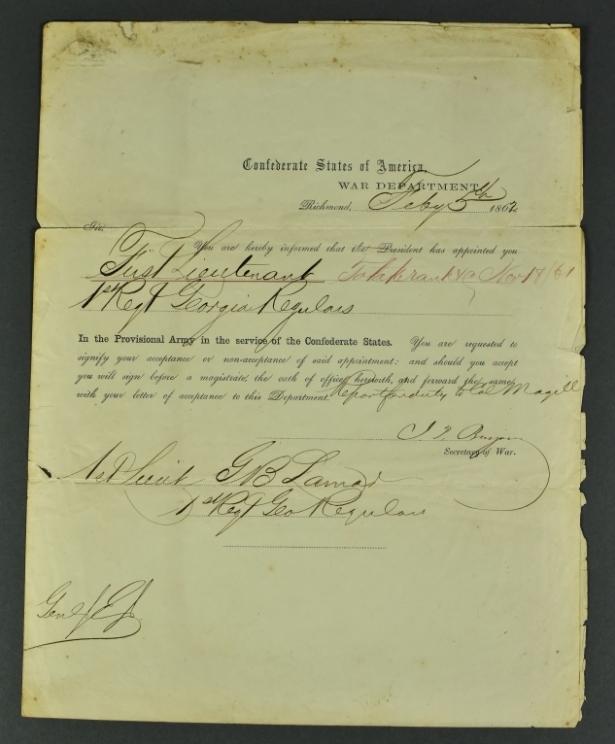 Confederate States of America,
WAR DEPARTMENT,
Richmond, Feby 5th 1862
Sir:
You are hereby informed that the President has appointed you
First Lieutenant To take rank &c Nov 19/61
1st Regt Georgia Regulars
In the Provisional Army in the service of the Confederate States. You are requested to
signify your acceptance or non-acceptance of said appointment; and should you accept
you will sign before a magistrate, the oath of office herewith, and forward the same,
with your letter of acceptance to this Department. Report for duty to Col Magill
Secretary of War.
Lieut G B Lamar
1st Regt Geo Regulars